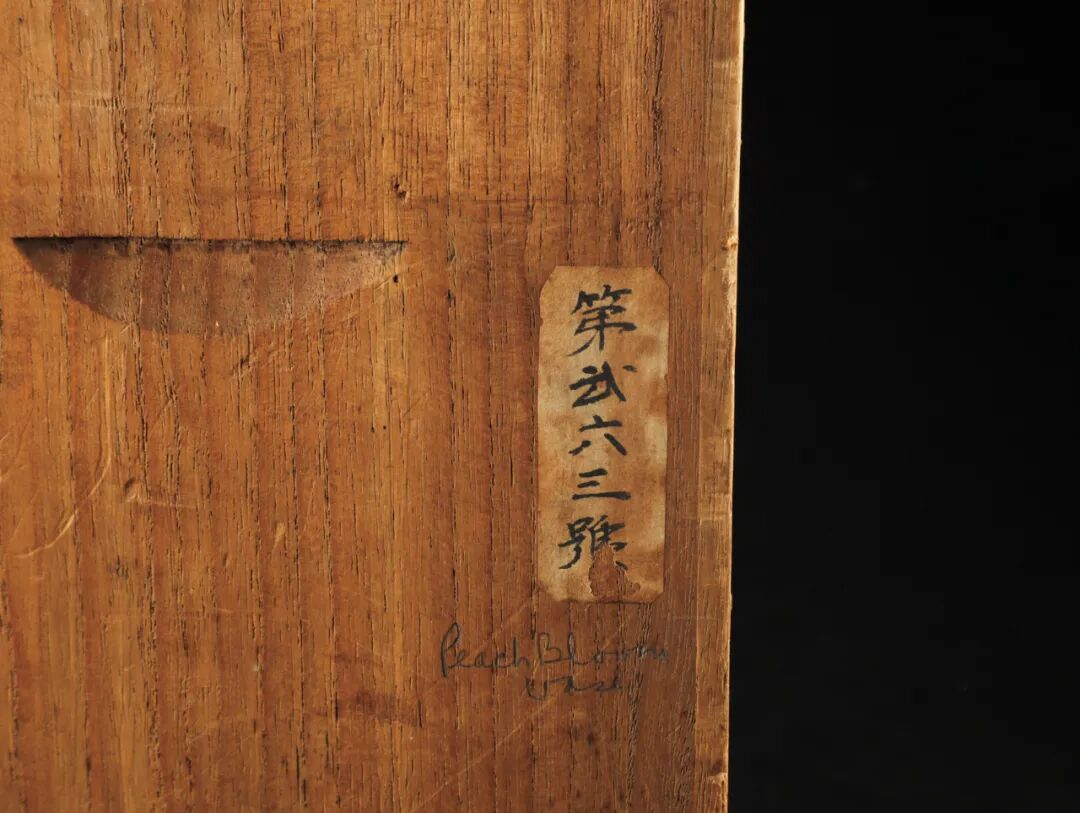 第弐六三號
Peach Bloom
vase